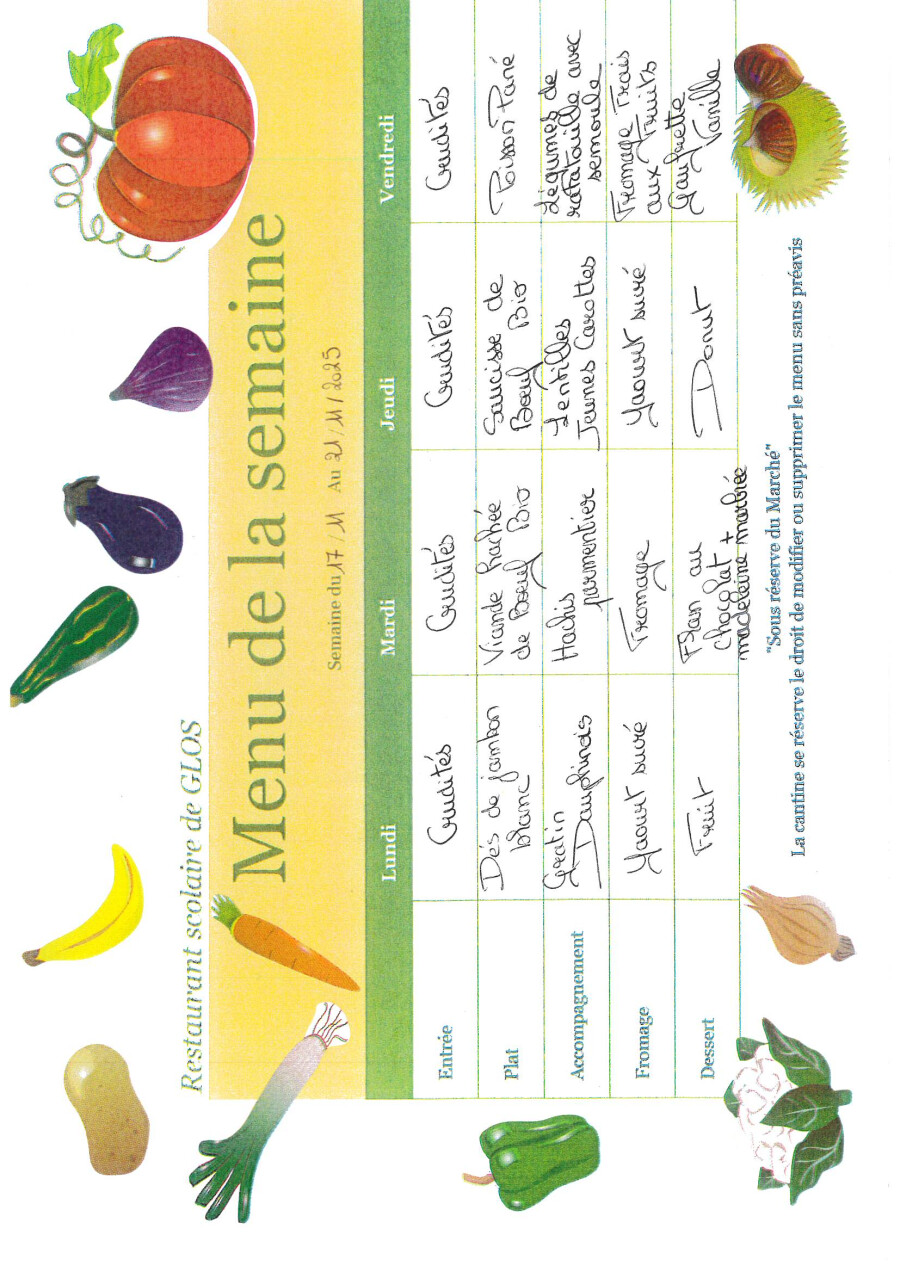 Restaurant scolaire de GLOS
Menu de la semaine
Semaine du 17/11 Au 21/11/2025
Lundi Mardi Jeudi Vendredi
Entrée Crudités Crudités Crudités Crudités
Plat Dés de jambon blanc Viande hachée de Bœuf Bio Saucisse de Bœuf Bio Poisson Pané
Accompagnement Gratin Dauphinois Hachis parmentier Lentilles Jeunes Carottes Légumes de ratatouille avec semoule
Fromage Yaourt sucré Fromage Yaourt sucré Fromage Frais aux Fruits
Dessert Fruit Flan au chocolat + madeleine marbrée Donut Gaufrette Vanille
"Sous réserve du Marché"
La cantine se réserve le droit de modifier ou supprimer le menu sans préavis